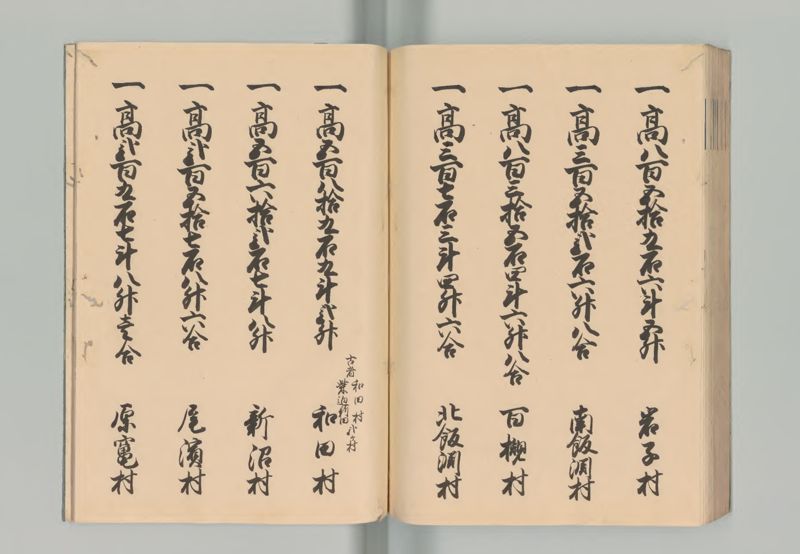 一高八百五拾九石六斗五升 岩子村
一高三百五拾弐石六升八合 南飯渕村
一高八百三拾五石四斗六升八合 百槻村
一高三百七石三斗四升六合 北飯渕村
古者 和田村
柴迫新田
一高五百八拾九石九斗弐升 和田村
一高五百六拾弐石七斗八升 新沼村
一高弐百五拾七石八升六合 尾濱村
一高弐百九石七斗八升壱合 原竃村